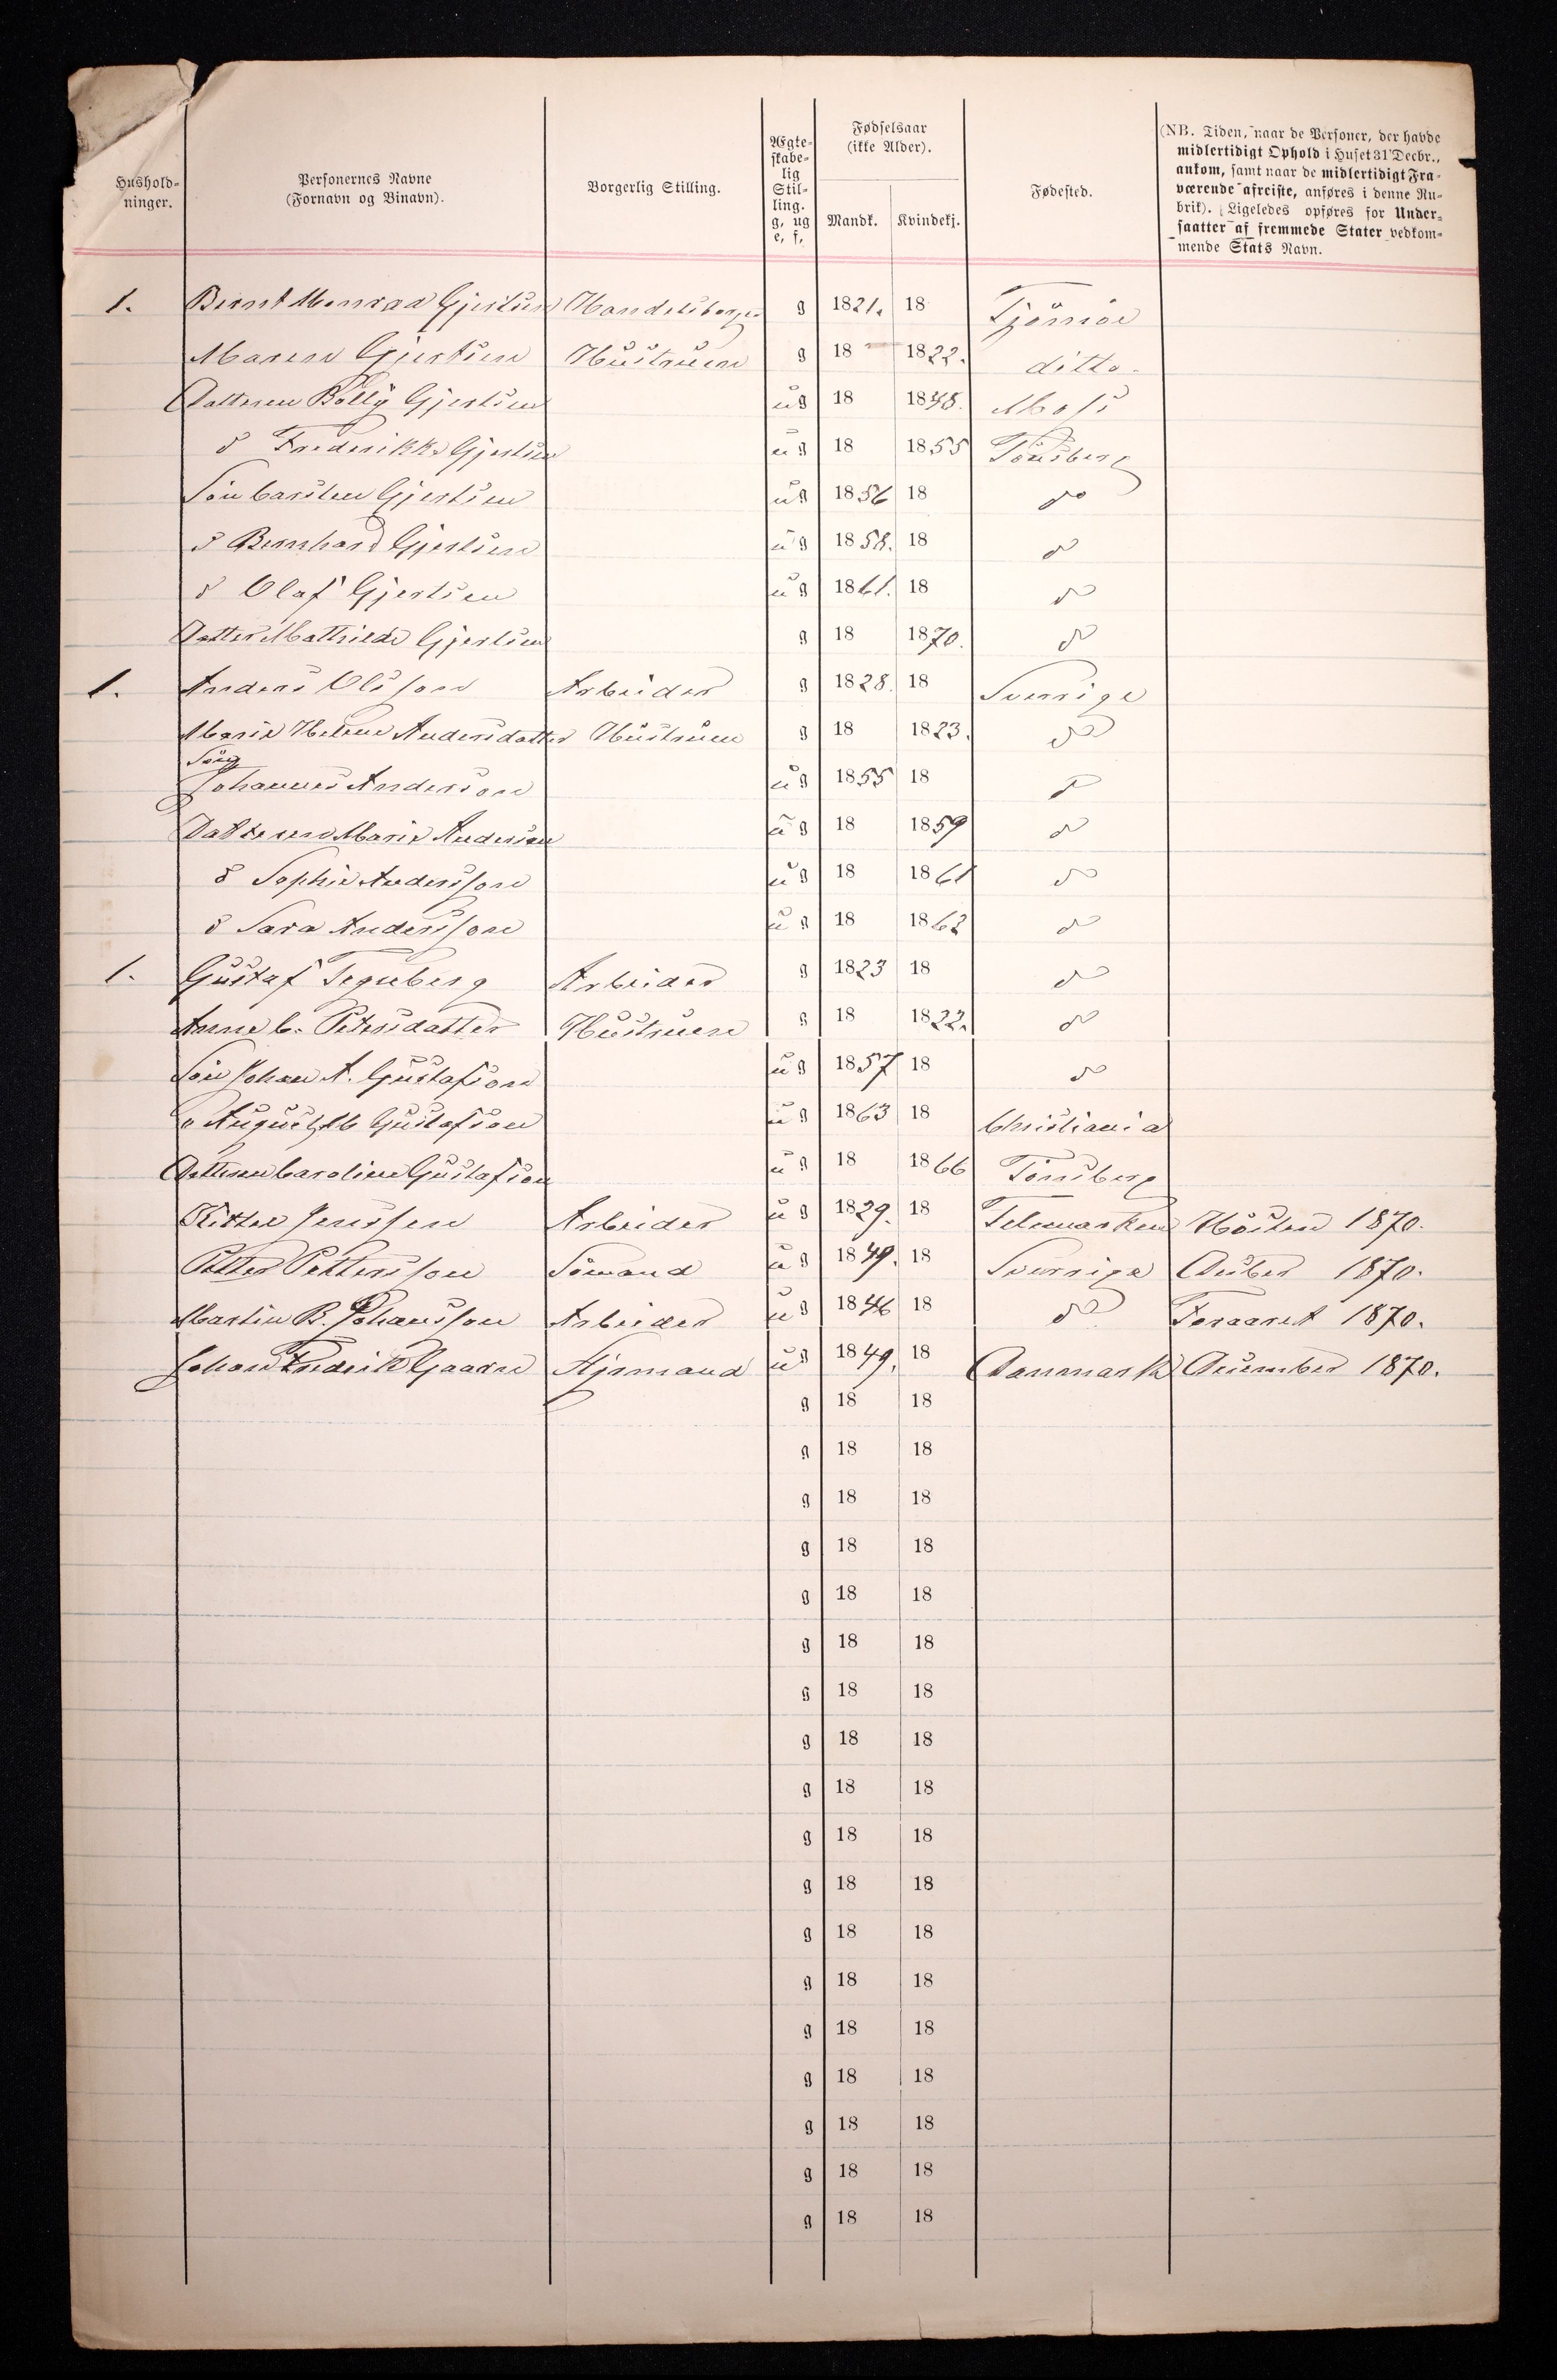 Hushold-
ninger.
Personernes Navne
(Fornavn og Binavn).
Borgerlig Stilling.
Ægte-
skabe-
lig
Stil-
ling.
g, ug
e, f,
Fødselsaar
(ikke Alder).
Mandk. Kvindekj.
Fødested.
(NB. Tiden, naar de Personer, der havde
midlertidigt Ophold i Huset 31 Decbr.,
ankom, samt naar de midlertidigt Fra-
værende afreiste, anføres i denne Ru-
brik). Ligeledes opføres for Under-
saatter af fremmede Stater vedkom-
mende Stats Navn.
1. Bernt Monrad Gjertsen Handelsborger g 1821. 18 Tjømøe
Maren Gjertsen Hustruen g 18 1822. ditto
Datteren Bolly Gjertsen ug 18 1848. Moss
do Frederikke Gjertsen ug 18 1855 Tønsberg
Søn Carsten Gjertsen ug 1856 18 do
do Bernhard Gjertsen ug 1858. 18 do
do Olaf Gjertsen ug 1861. 18 do
Datter Mathilde Gjertsen g 18 1870. do
1. Anders Olsson Arbeider g 1828. 18 Sverrige
Maria Helene Andersdatter Hustruen g 18 1823. do
Søn
Johannes Anderson ug 1855 18 do
Datteren Maria Anderson ug 18 1859 do
do Sophie Andersson ug 18 1861 do
do Sara Andersson ug 18 1862 do
1. Gustaf Tegneberg Arbeider g 1823 18 do
Anne C. Petersdatter Hustruen g 18 1822. do
Søn Johan A. Gustafson ug 1857 18 do
" August M Gustafson ug 1863 18 Christiania
Datteren Caroline Gustafson ug 18 1866 Tønsberg
Kittel Jenssen Arbeider ug 1829. 18 Telemarken Høsten 1870.
Petter Pettersson Sømand ug 1849. 18 Sverrige 1870.
Martin B. Johansson Arbeider ug 1846 18 do Foraaret 1870.
Johan Frederik Gaarn Styrmand ug 1849. 18 Danmark December 1870.
g 18 18
g 18 18
g 18 18
g 18 18
g 18 18
g 18 18
g 18 18
g 18 18
g 18 18
g 18 18
g 18 18
g 18 18
g 18 18
g 18 18
g 18 18
g 18 18
g 18 18
g 18 18